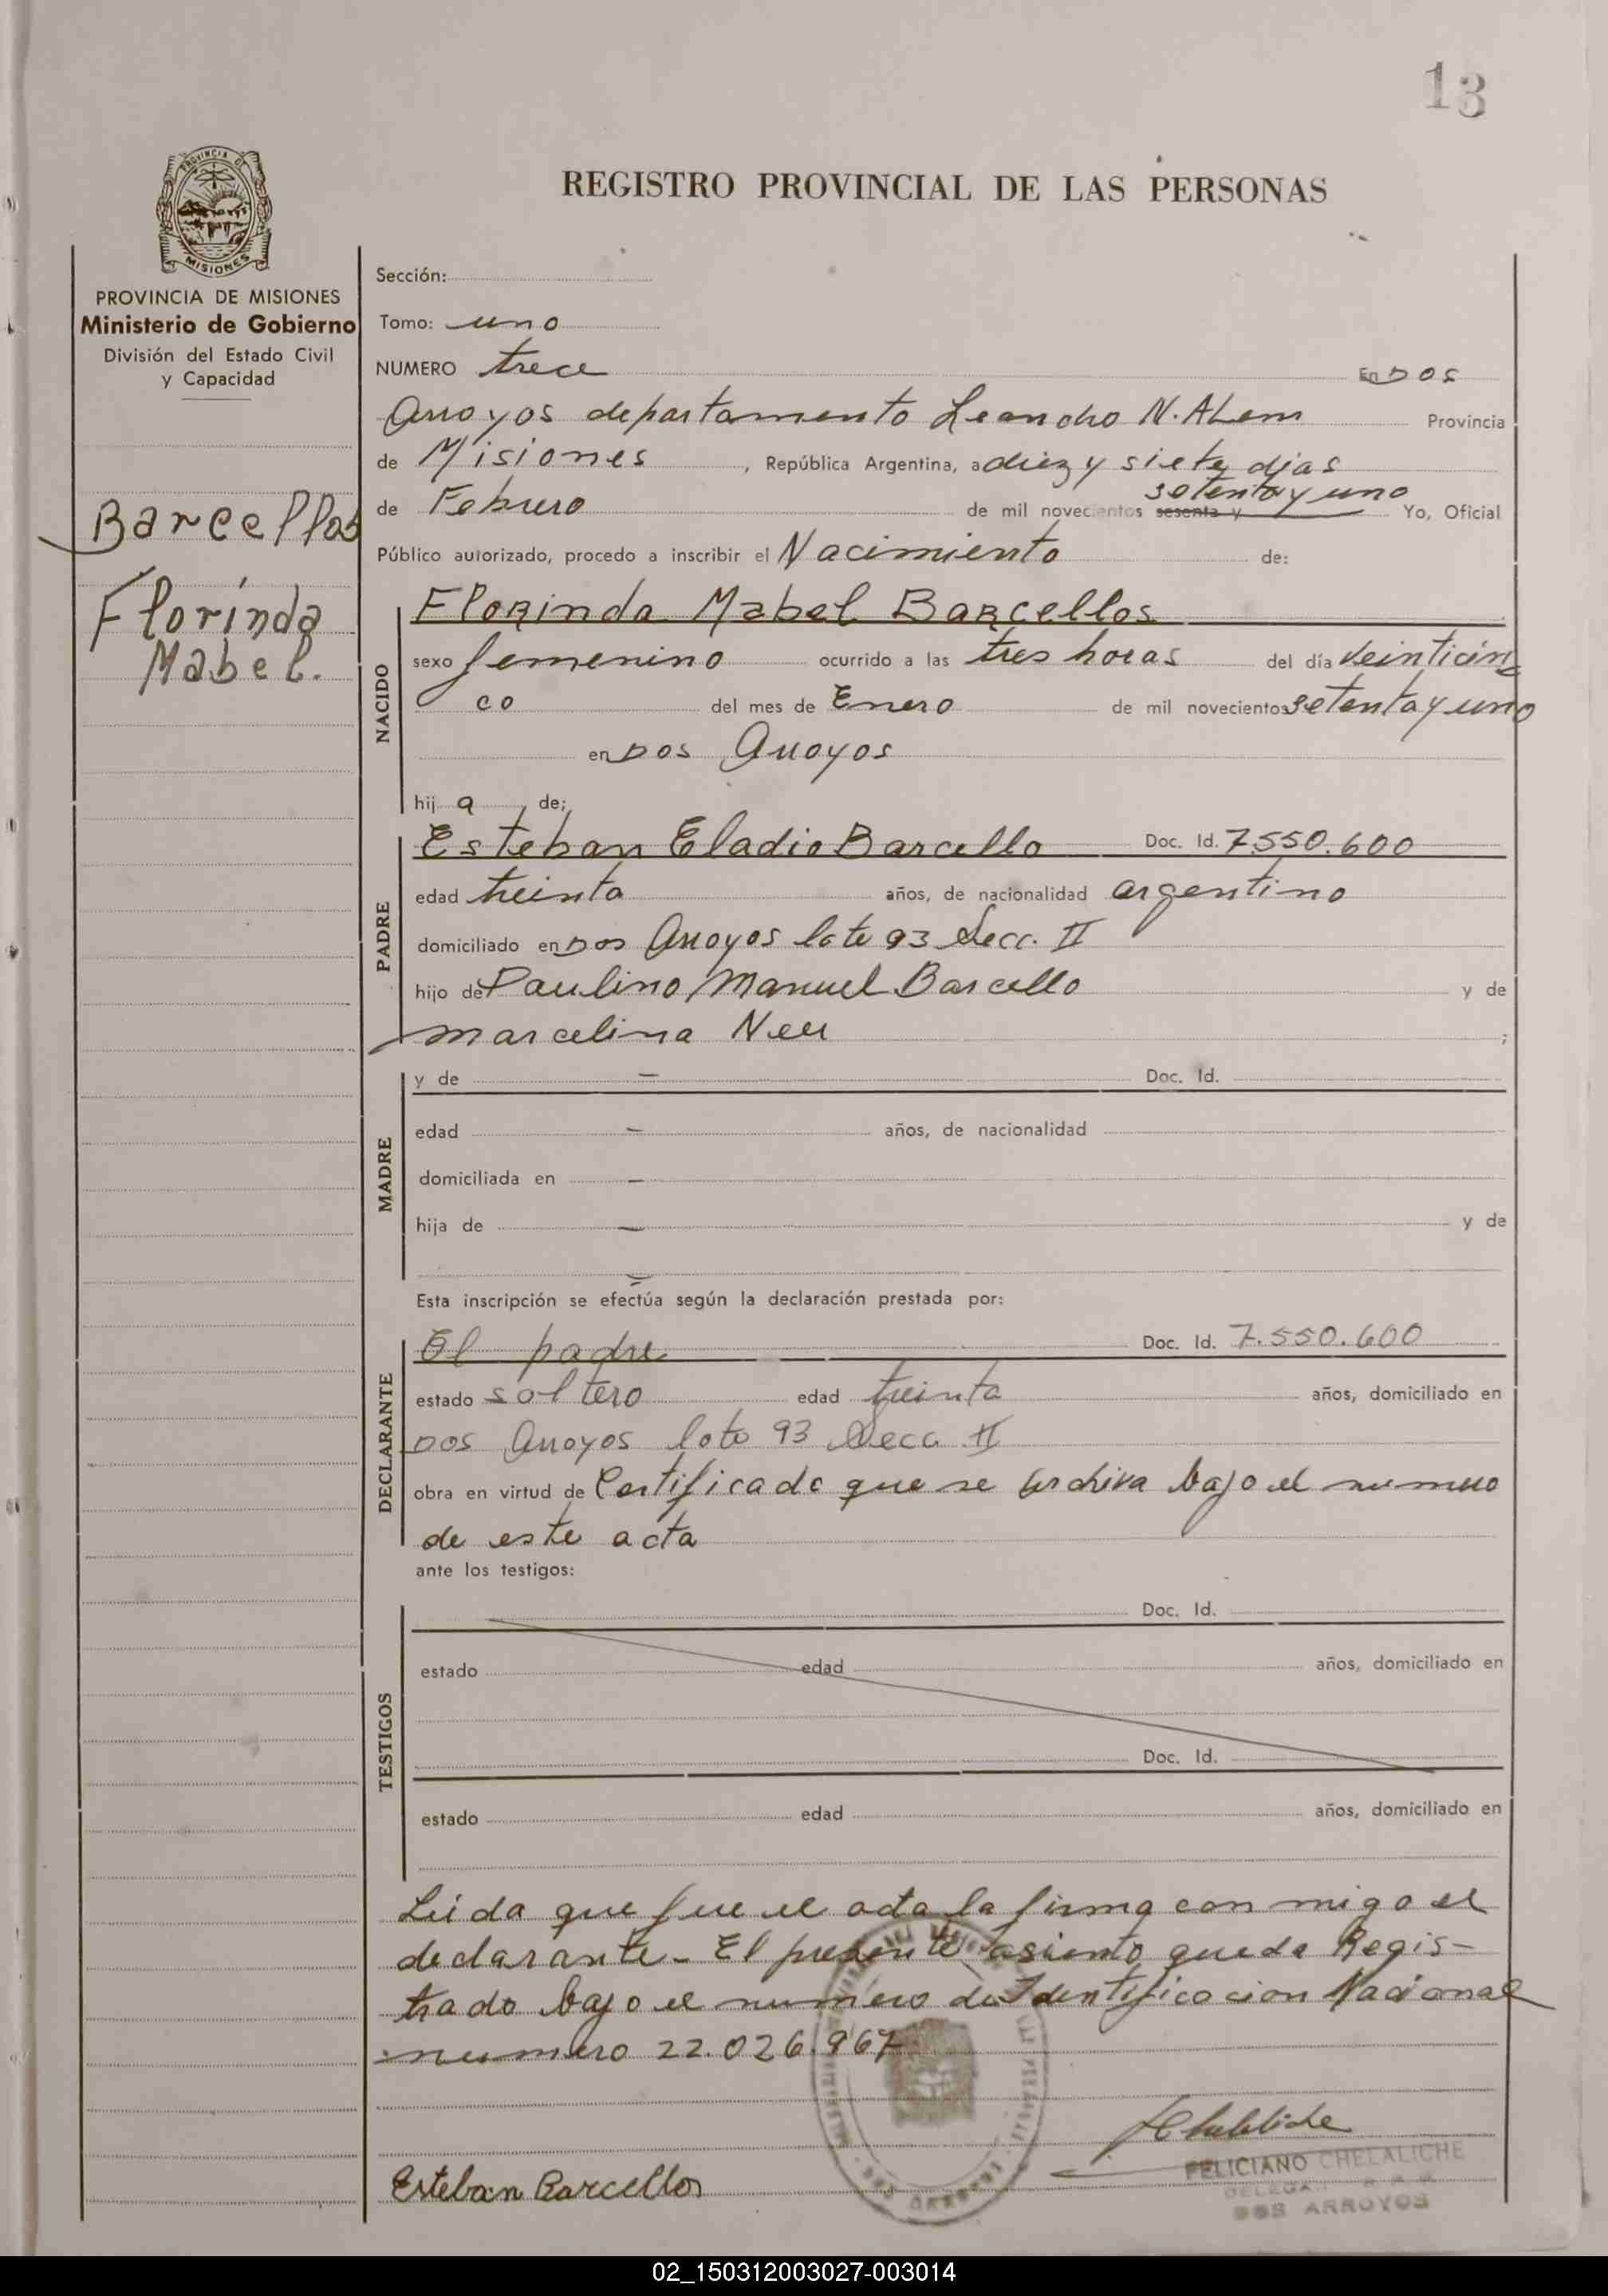 13
REGISTRO PROVINCIAL DE LAS PERSONAS
PROVINCIA DE
MISIONES
PROVINCIA DE MISIONES
Ministerio de Gobierno
División del Estado Civil
y Capacidad
Barcellos
Florinda
Mabel.
Sección:
Tomo: uno
NUMERO trece En Dos
Arroyos departamento Leandro N. ALem Provincia
de Misiones, República Argentina, a diez y siete dias
setenta y uno
de Febrero de mil novecientos sesenta y Yo, Oficial
Público autorizado, procedo a inscribir el Nacimiento de:
NACIDO
Florinda Mabel Barcellos
sexo femenino ocurrido a las tres horas del día veinticin
co del mes de Enero de mil novecientos setenta y uno
en Dos Arroyos
hij a de;
PADRE
Esteban Eladio Barcello Doc. Id. 7.550.600
edad treinta años, de nacionalidad argentino
domiciliado en Dos Arroyos lote 93 Secc. II
hijo de Paulino Manuel Barcello y de
Marcelina Neu ;
MADRE
y de — Doc. Id.
edad — años, de nacionalidad
domiciliada en —
hija de — y de
—
Esta inscripción se efectúa según la declaración prestada por:
DECLARANTE
El padre Doc. Id. 7.550.600
estado soltero edad treinta años, domiciliado en
Dos Arroyos lote 93 Secc. II
obra en virtud de Certificado que se archiva bajo el numero
de este acta
ante los testigos:
TESTIGOS
Doc. Id.
estado edad años, domiciliado en
Doc. Id.
estado edad años, domiciliado en
Leida que fue el acta la firma con migo el
declarante- El presente asiento queda Regis-
trado bajo el numero de Identificacion Nacional
numero 22.026.967
Esteban Barcellos
FELICIANO CHELALICHE
DOS ARROYOS
02_150312003027-003014